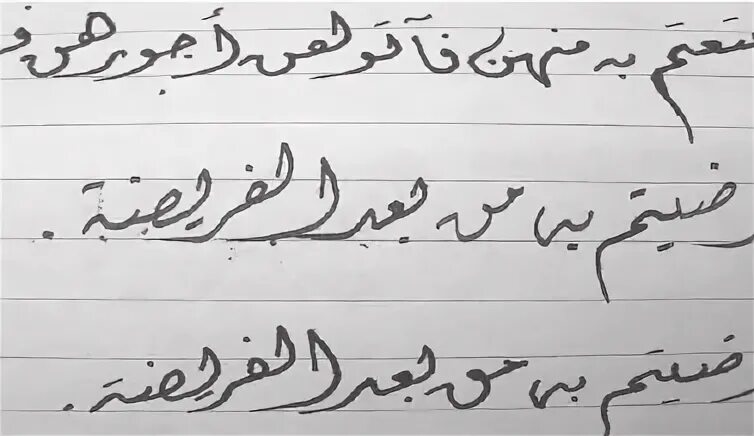 تعتم به منهن فآتوهن أجورهن ف
ضيتم به من بعد الفريضة .
ضيتم به من بعد الفريضة .